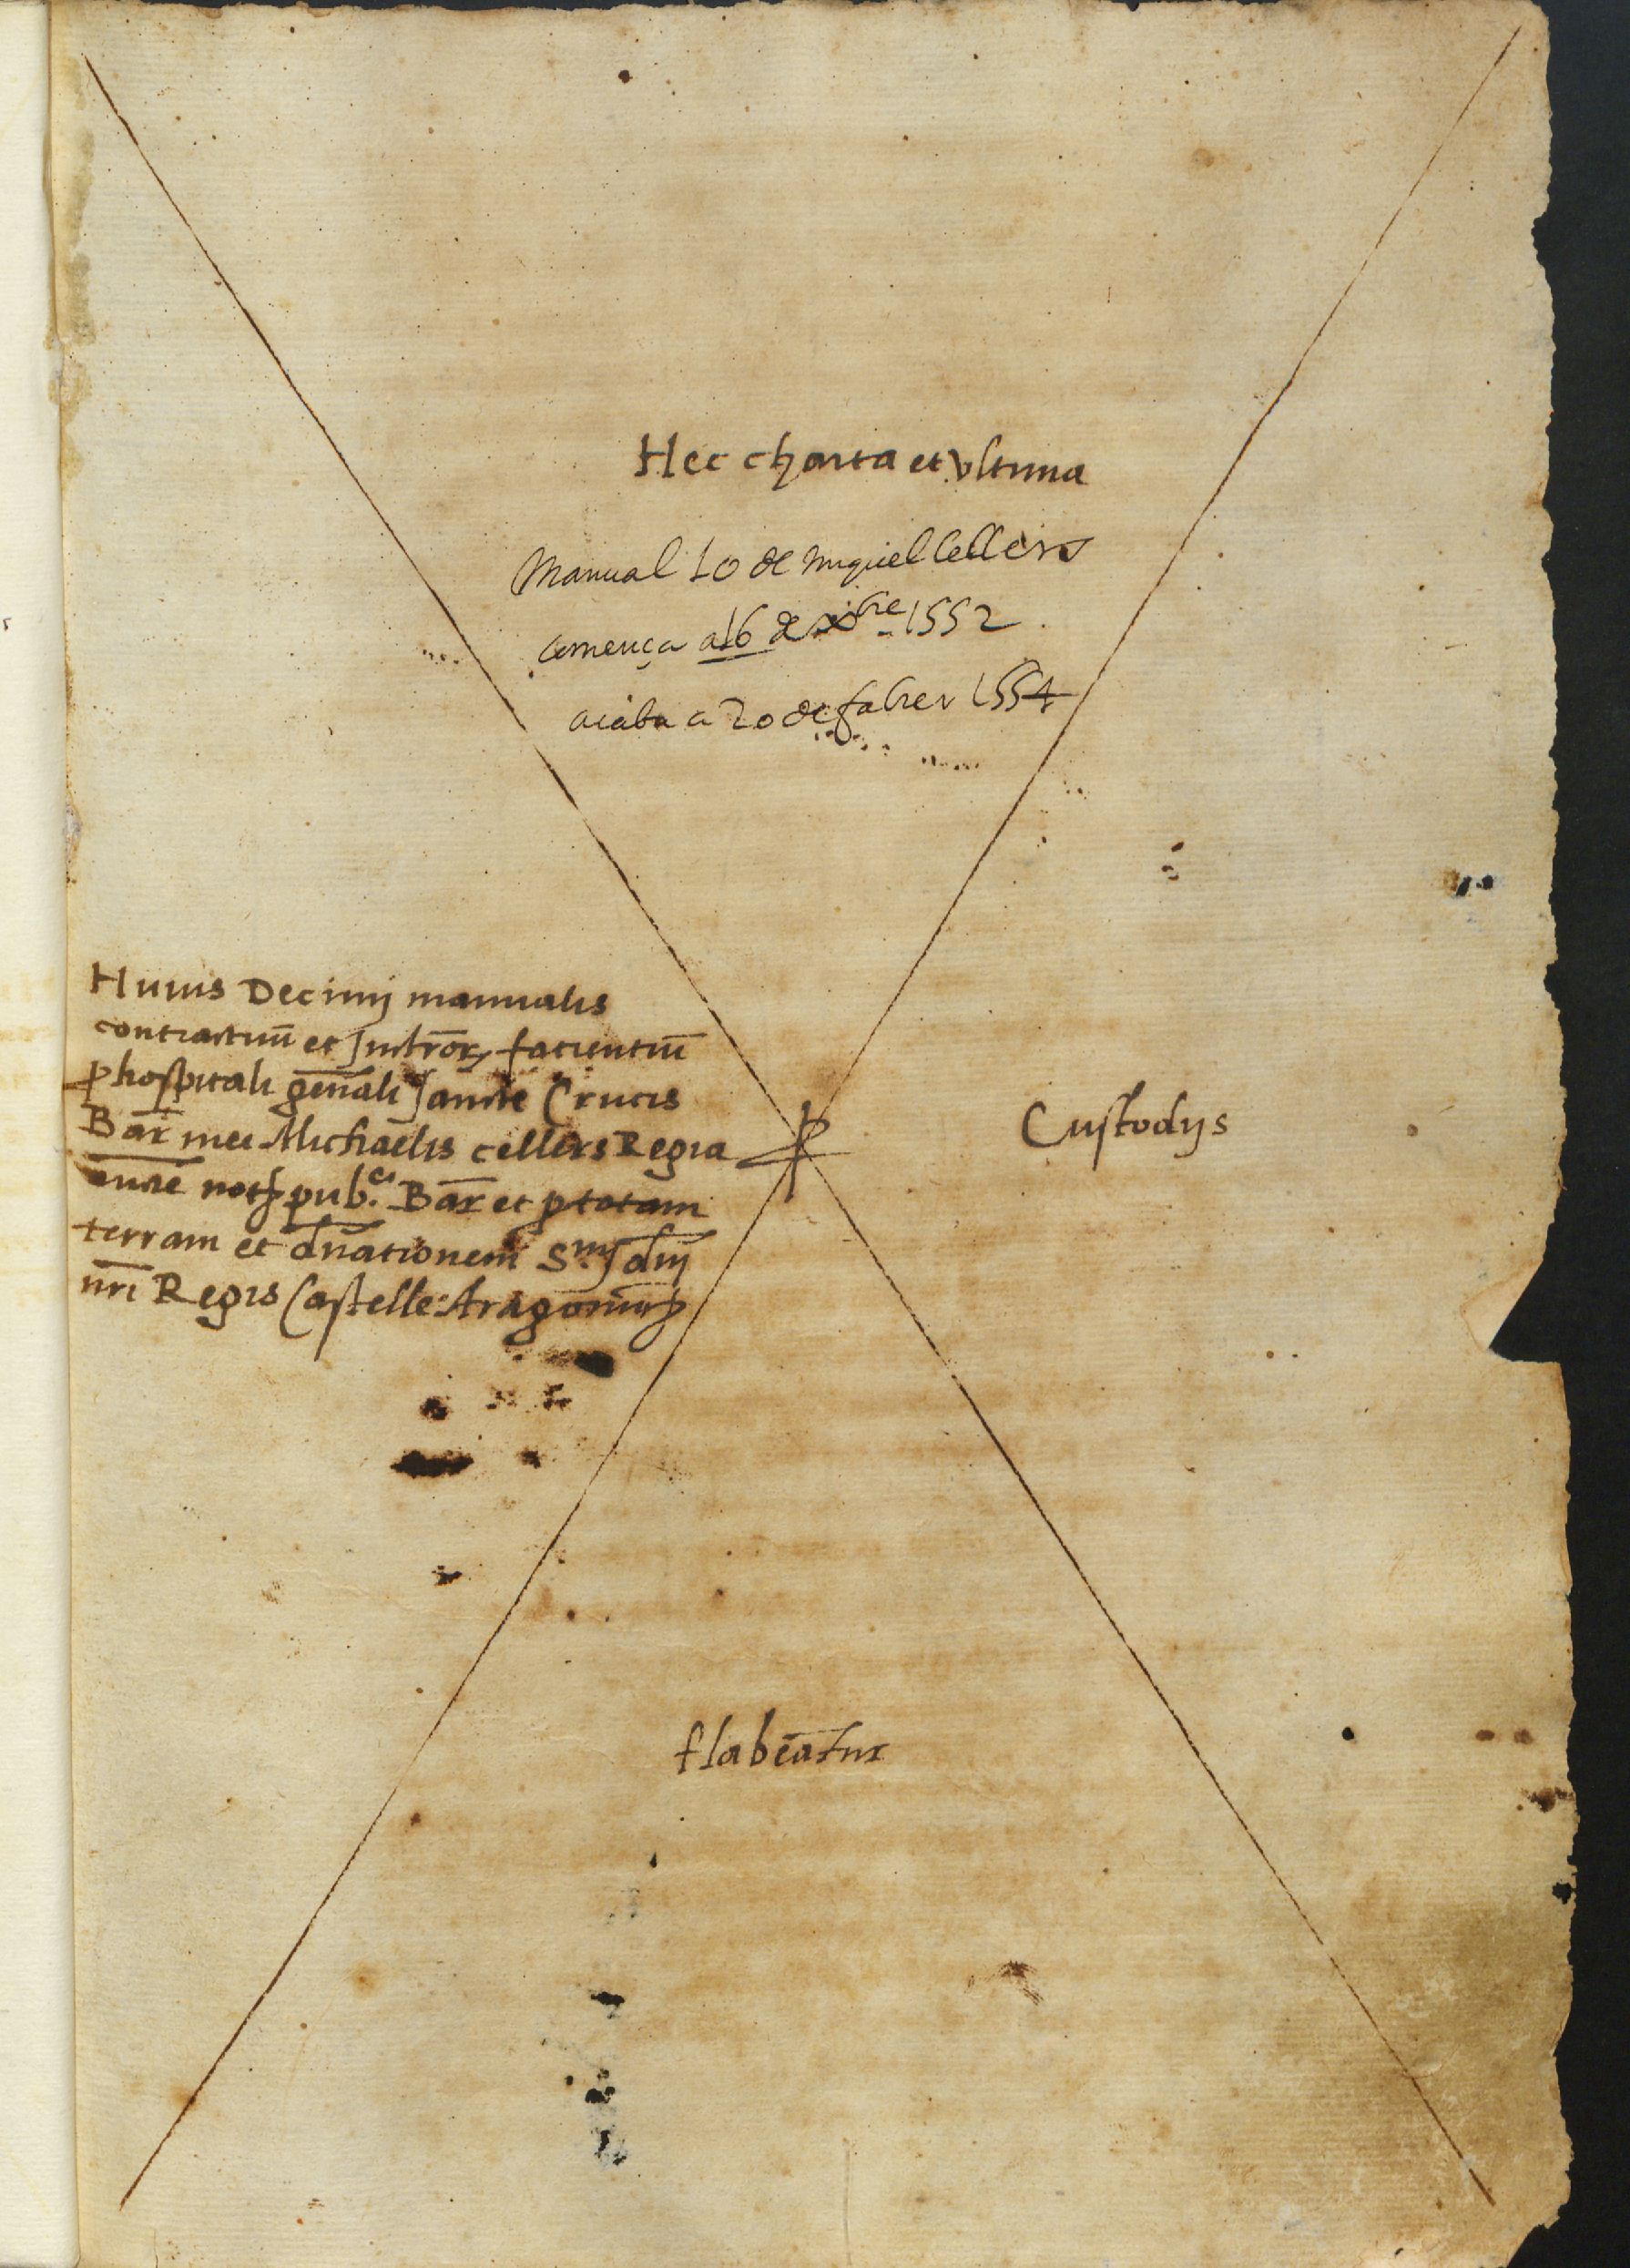 Hec charta et vltima
Manual 10 de miquel Cellers
comença a 16 de xbre 1552
acaba a 20 de fabrer 1554
Huius Decimj manualis
contractuū et Jnstrōꝝ facientiū
ꝑ hospitali gēnali sancte Crucis
Bar̄ mei Michaelis cellers Regia
aucte notꝭ pub.ci Bar̄ et ꝑ totam
terram et dn̄ationem S.mj dn̄j
nr̄i Regis Castelle Aragonum
Custodijs
flabēatur